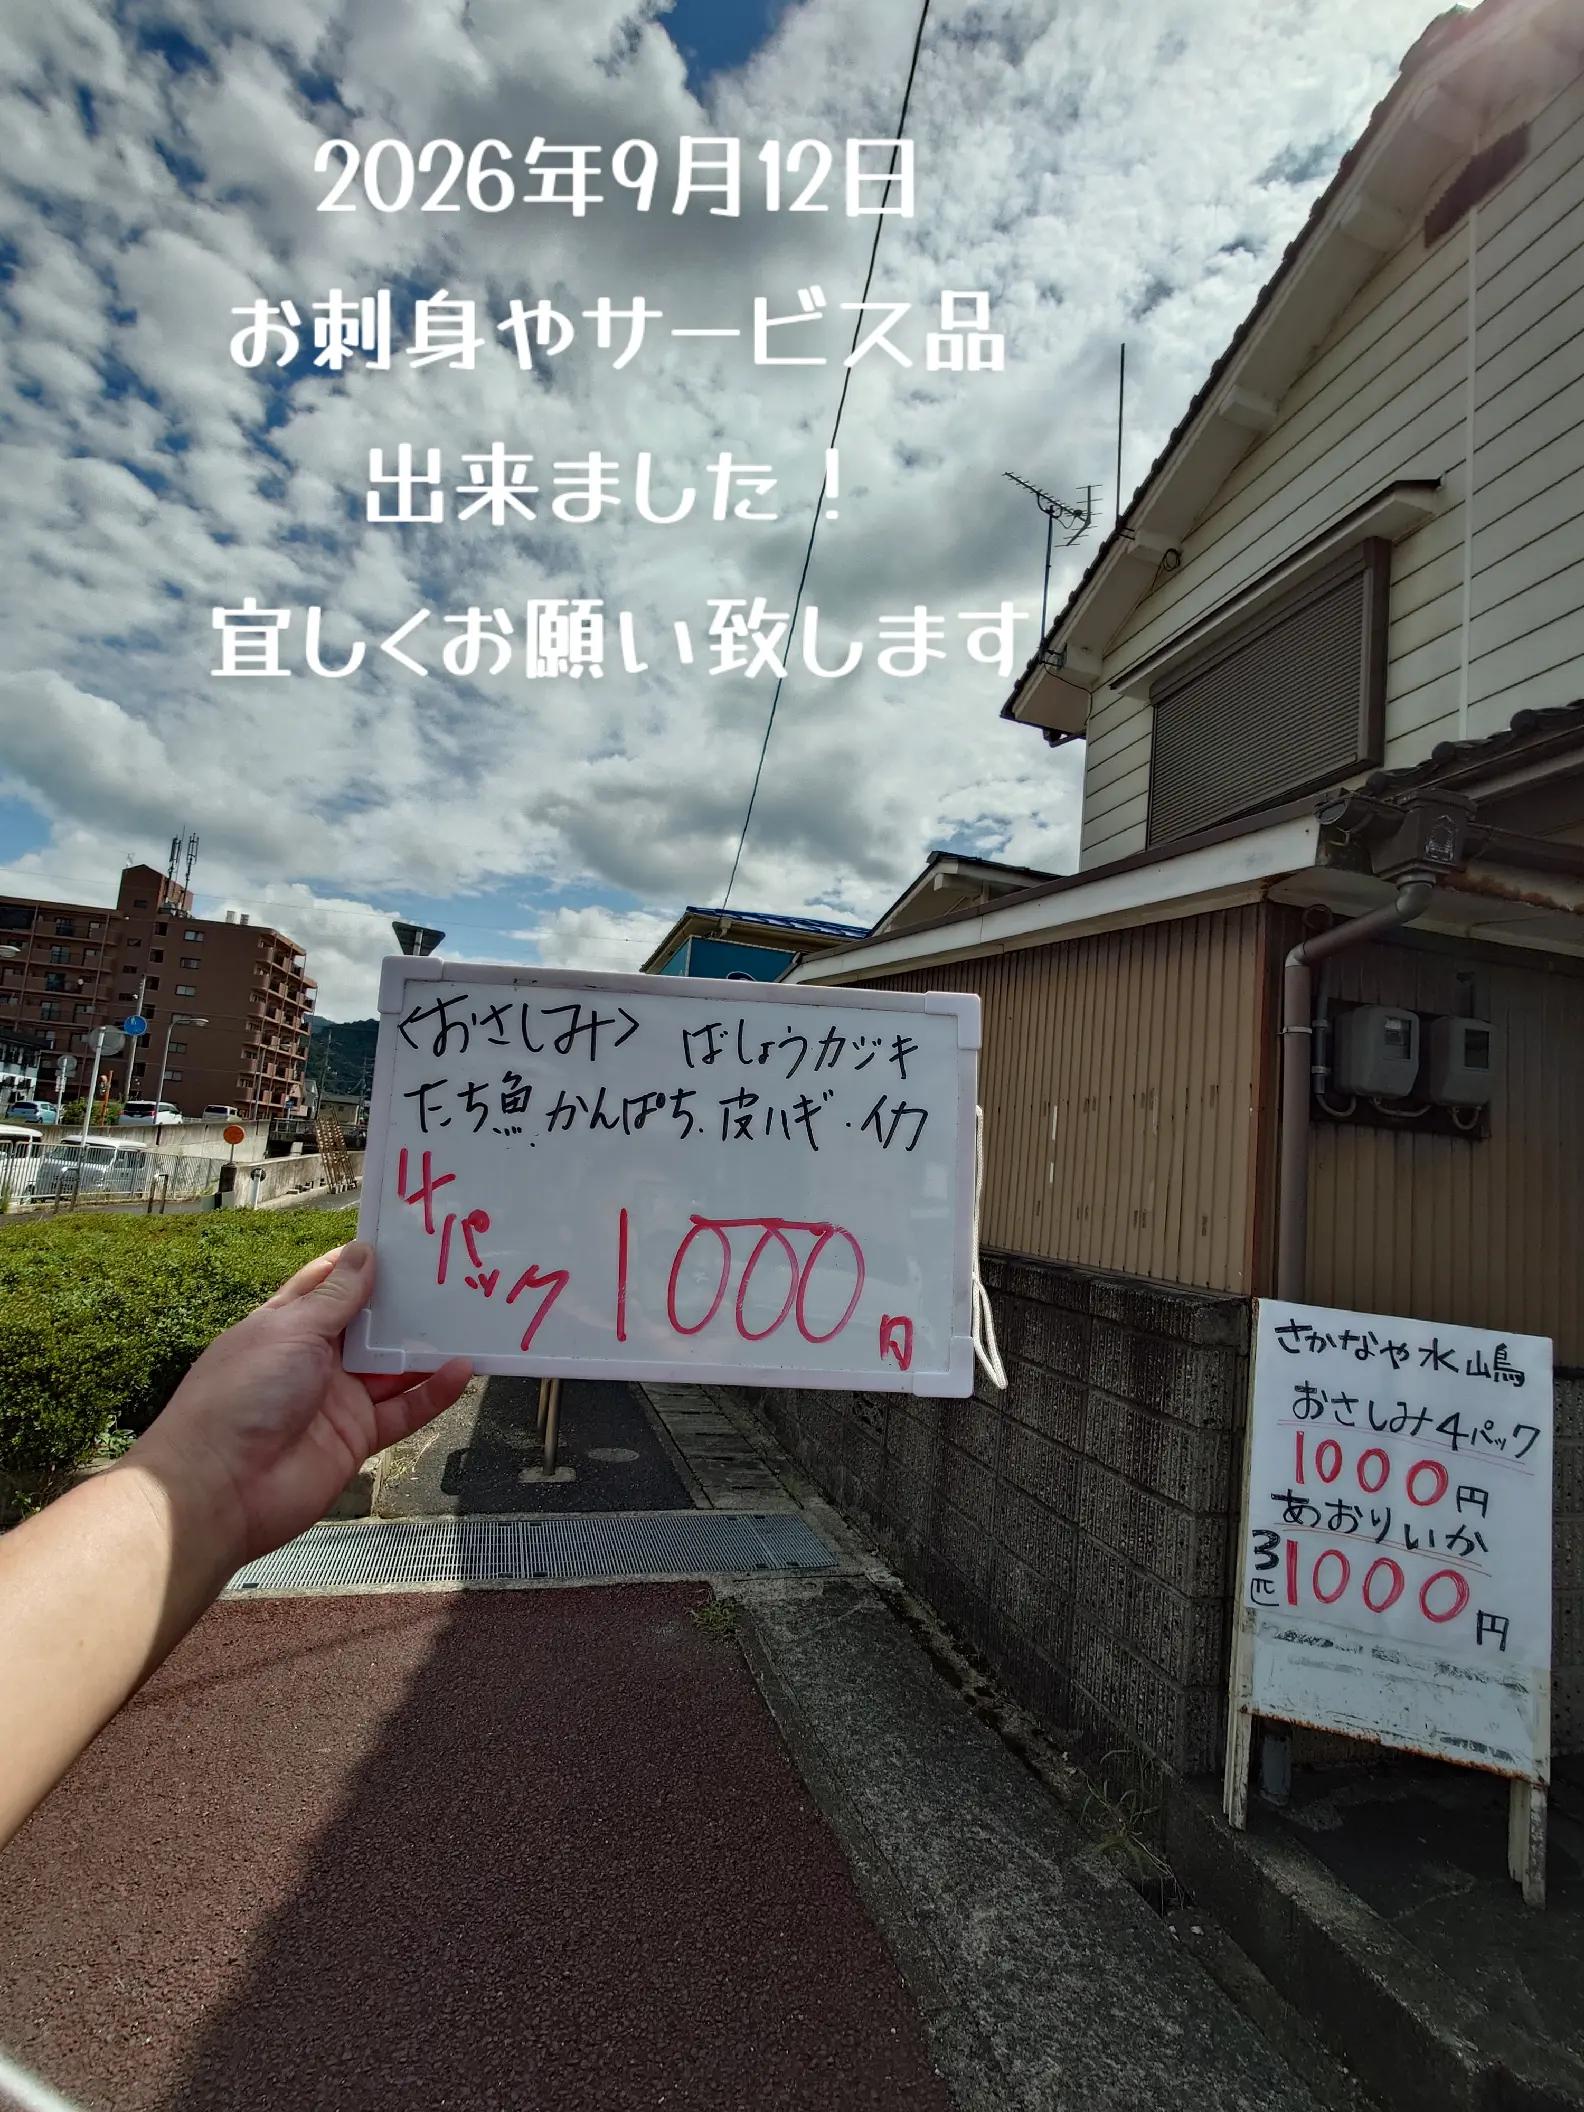 2026年9月12日
お刺身やサービス品
出来ました！
宜しくお願い致します
<おさしみ> ばしょうカジキ
たち魚.かんぱち.皮ハギ・イカ
4パック 1000円
さかなや水嶋
おさしみ4パック
1000円
あおりいか
3匹1000円